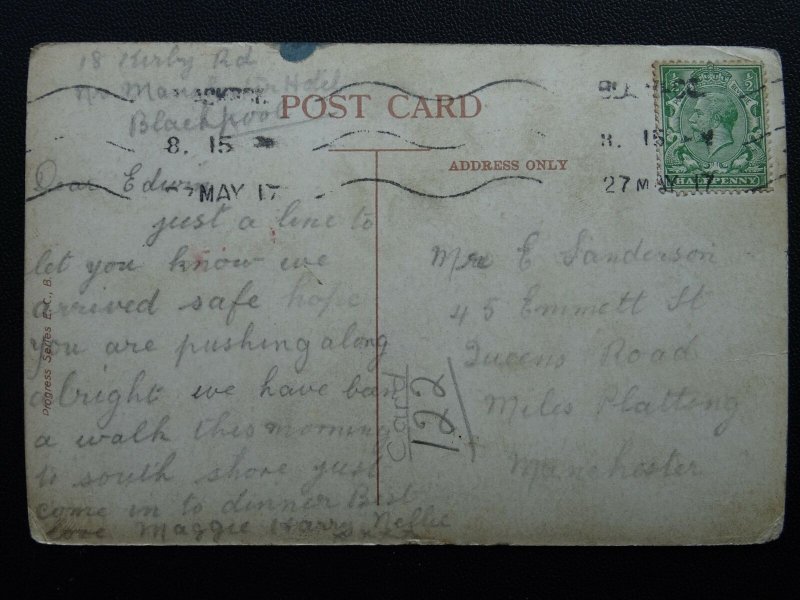 18 Kirby Rd
Nr Manchester Hotel
Blackpool
POST CARD
ADDRESS ONLY
8. 15
27 MAY 17
8. 15
27 MAY 17
HALFPENNY
Dear Edwin
just a line to
let you know we
arrived safe hope
you are pushing along
alright we have ban
a walk this morning
to south shore just
come in to dinner Best
love Maggie Harry Nellie
Progress Series E.C., B.
Card
122
Mrs E Sanderson
45 Emmett St
Queens Road
Miles Platting
Manchester